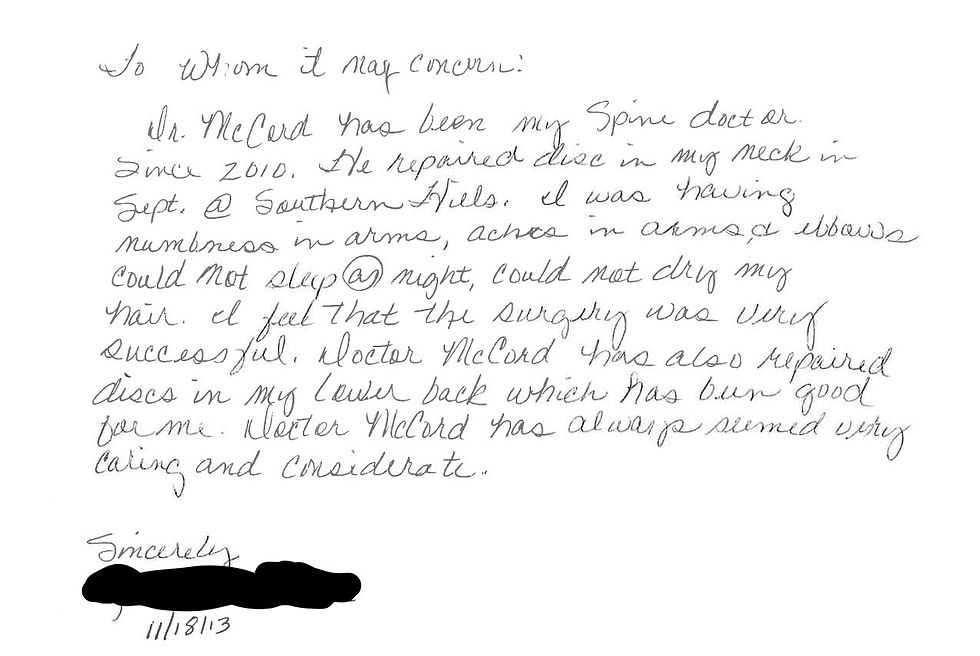 To Whom it may concern:
Dr. McCord has been my Spine doctor.
Since 2010. He repaired disc in my neck in
Sept. @ Southern Hills. I was having
numbness in arms, aches in arms, & elbows
could not sleep @ night, could not dry my
hair. I feel that the surgery was very
successful. Doctor McCord has also repaired
discs in my lower back which has been good
for me. Doctor McCord has always seemed very
caring and considerate.
Sincerely
11/18/13